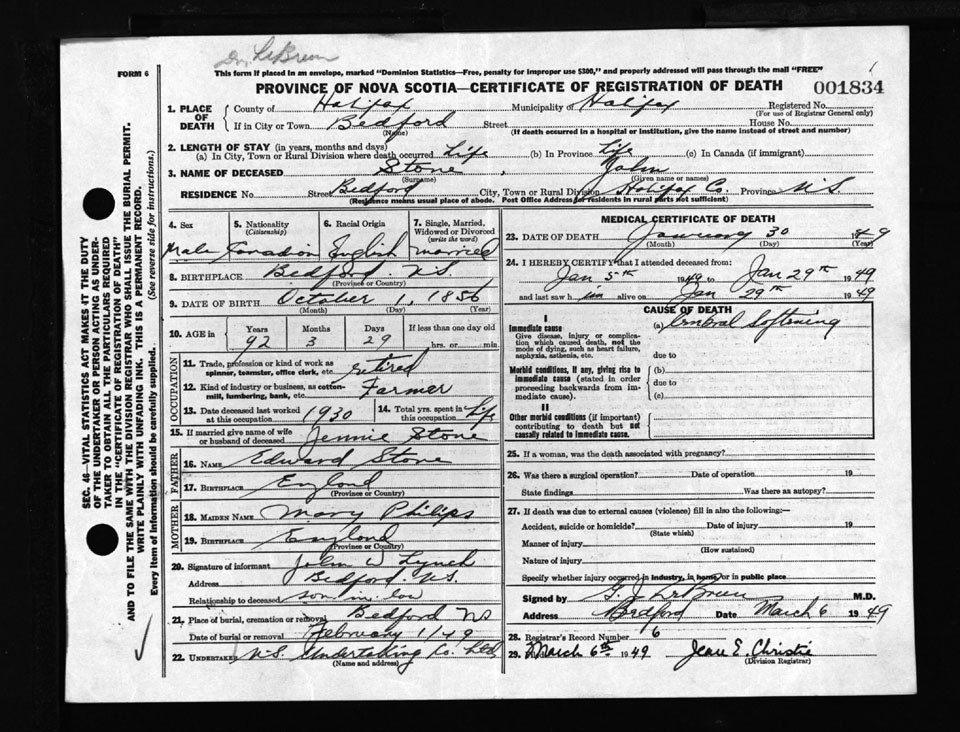 Dr. LeBrun
FORM 6
This form if placed in an envelope, marked "Dominion Statistics—Free, penalty for improper use $300," and properly addressed will pass through the mail "FREE"
PROVINCE OF NOVA SCOTIA—CERTIFICATE OF REGISTRATION OF DEATH
001834
1. PLACE OF DEATH
County of Halifax Municipality of Halifax Registered No.
(For use of Registrar General only)
If in City or Town Bedford Street House No.
(Name) (If death occurred in a hospital or institution, give the name instead of street and number)
2. LENGTH OF STAY (in years, months and days)
(a) In City, Town or Rural Division where death occurred Life (b) In Province Life (c) In Canada (if immigrant)
3. NAME OF DECEASED Stone, John
(Surname) (Given name or names)
RESIDENCE No Street Bedford City, Town or Rural Division Halifax Co. Province N.S.
(Residence means usual place of abode. Post Office Address for residents in rural parts not sufficient)
4. Sex 5. Nationality (Citizenship) 6. Racial Origin 7. Single, Married, Widowed or Divorced (write the word)
Male Canadian English married
8. BIRTHPLACE Bedford N.S.
(Province or Country)
9. DATE OF BIRTH October 1, 1856
(Month) (Day) (Year)
10. AGE in Years Months Days If less than one day old
92 3 29 hrs. or min.
OCCUPATION
11. Trade, profession or kind of work as spinner, teamster, office clerk, etc. retired
12. Kind of industry or business, as cotton-mill, lumbering, bank, etc. Farmer
13. Date deceased last worked at this occupation 1930 14. Total yrs. spent in this occupation Life
15. If married give name of wife or husband of deceased Jennie Stone
FATHER
16. NAME Edward Stone
17. BIRTHPLACE England
(Province or Country)
MOTHER
18. MAIDEN NAME Mary Philips
19. BIRTHPLACE England
(Province or Country)
20. Signature of informant John W Lynch
Address Bedford N.S.
Relationship to deceased son in law
21. Place of burial, cremation or removal Bedford NS
Date of burial or removal February 1/49
22. UNDERTAKER N.S. Undertaking Co. Ltd
(Name and address)
MEDICAL CERTIFICATE OF DEATH
23. DATE OF DEATH January 30 1949
(Month) (Day) (Year)
24. I HEREBY CERTIFY that I attended deceased from:
Jan 5th 1949 to Jan 29th 1949
and last saw him alive on Jan 29th 1949
CAUSE OF DEATH
I
Immediate cause (a) Cerebral Softening
Give disease, injury or complication which caused death, not the mode of dying, such as heart failure, asphyxia, asthenia, etc. due to
Morbid conditions, if any, giving rise to immediate cause (stated in order proceeding backwards from immediate cause). (b)
due to
(c)
II
Other morbid conditions (if important) contributing to death but not causally related to immediate cause.
25. If a woman, was the death associated with pregnancy?
26. Was there a surgical operation? Date of operation 19
State findings Was there an autopsy?
27. If death was due to external causes (violence) fill in also the following:—
Accident, suicide or homicide? Date of injury 19
(State which)
Manner of injury
(How sustained)
Nature of injury
Specify whether injury occurred in industry, in home or in public place
Signed by G. J. LeBrun M.D.
Address Bedford Date March 6 1949
28. Registrar's Record Number 6
29. March 6th 1949 Jean E. Christie
(Division Registrar)
SEC. 46—VITAL STATISTICS ACT MAKES IT THE DUTY
OF THE UNDERTAKER OR PERSON ACTING AS UNDER-
TAKER TO OBTAIN ALL THE PARTICULARS REQUIRED
IN THE "CERTIFICATE OF REGISTRATION OF DEATH"
AND TO FILE THE SAME WITH THE DIVISION REGISTRAR WHO SHALL ISSUE THE BURIAL PERMIT.
WRITE PLAINLY WITH UNFADING INK. THIS IS A PERMANENT RECORD.
Every item of information should be carefully supplied. (See reverse side for instructions.)